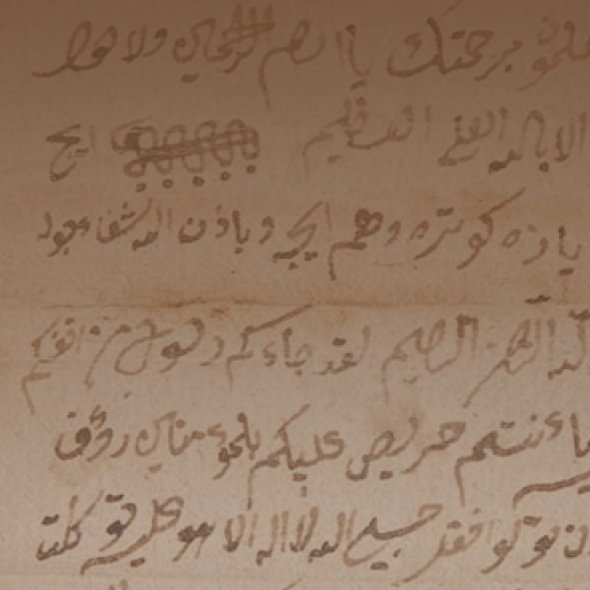 برحمتك يا ارحم الراحمين ولا حول
الا بالله العلي العظيم ايچ
يازه كوستره وهم ايچه وباذن الله شفا بولد
الرحمن الرحيم لقد جاءكم رسول من انفسكم
ما عنتم حريص عليكم بالمؤمنين رؤف
فان تولوا فقل حسبي الله لا اله الا هو عليه توكلت